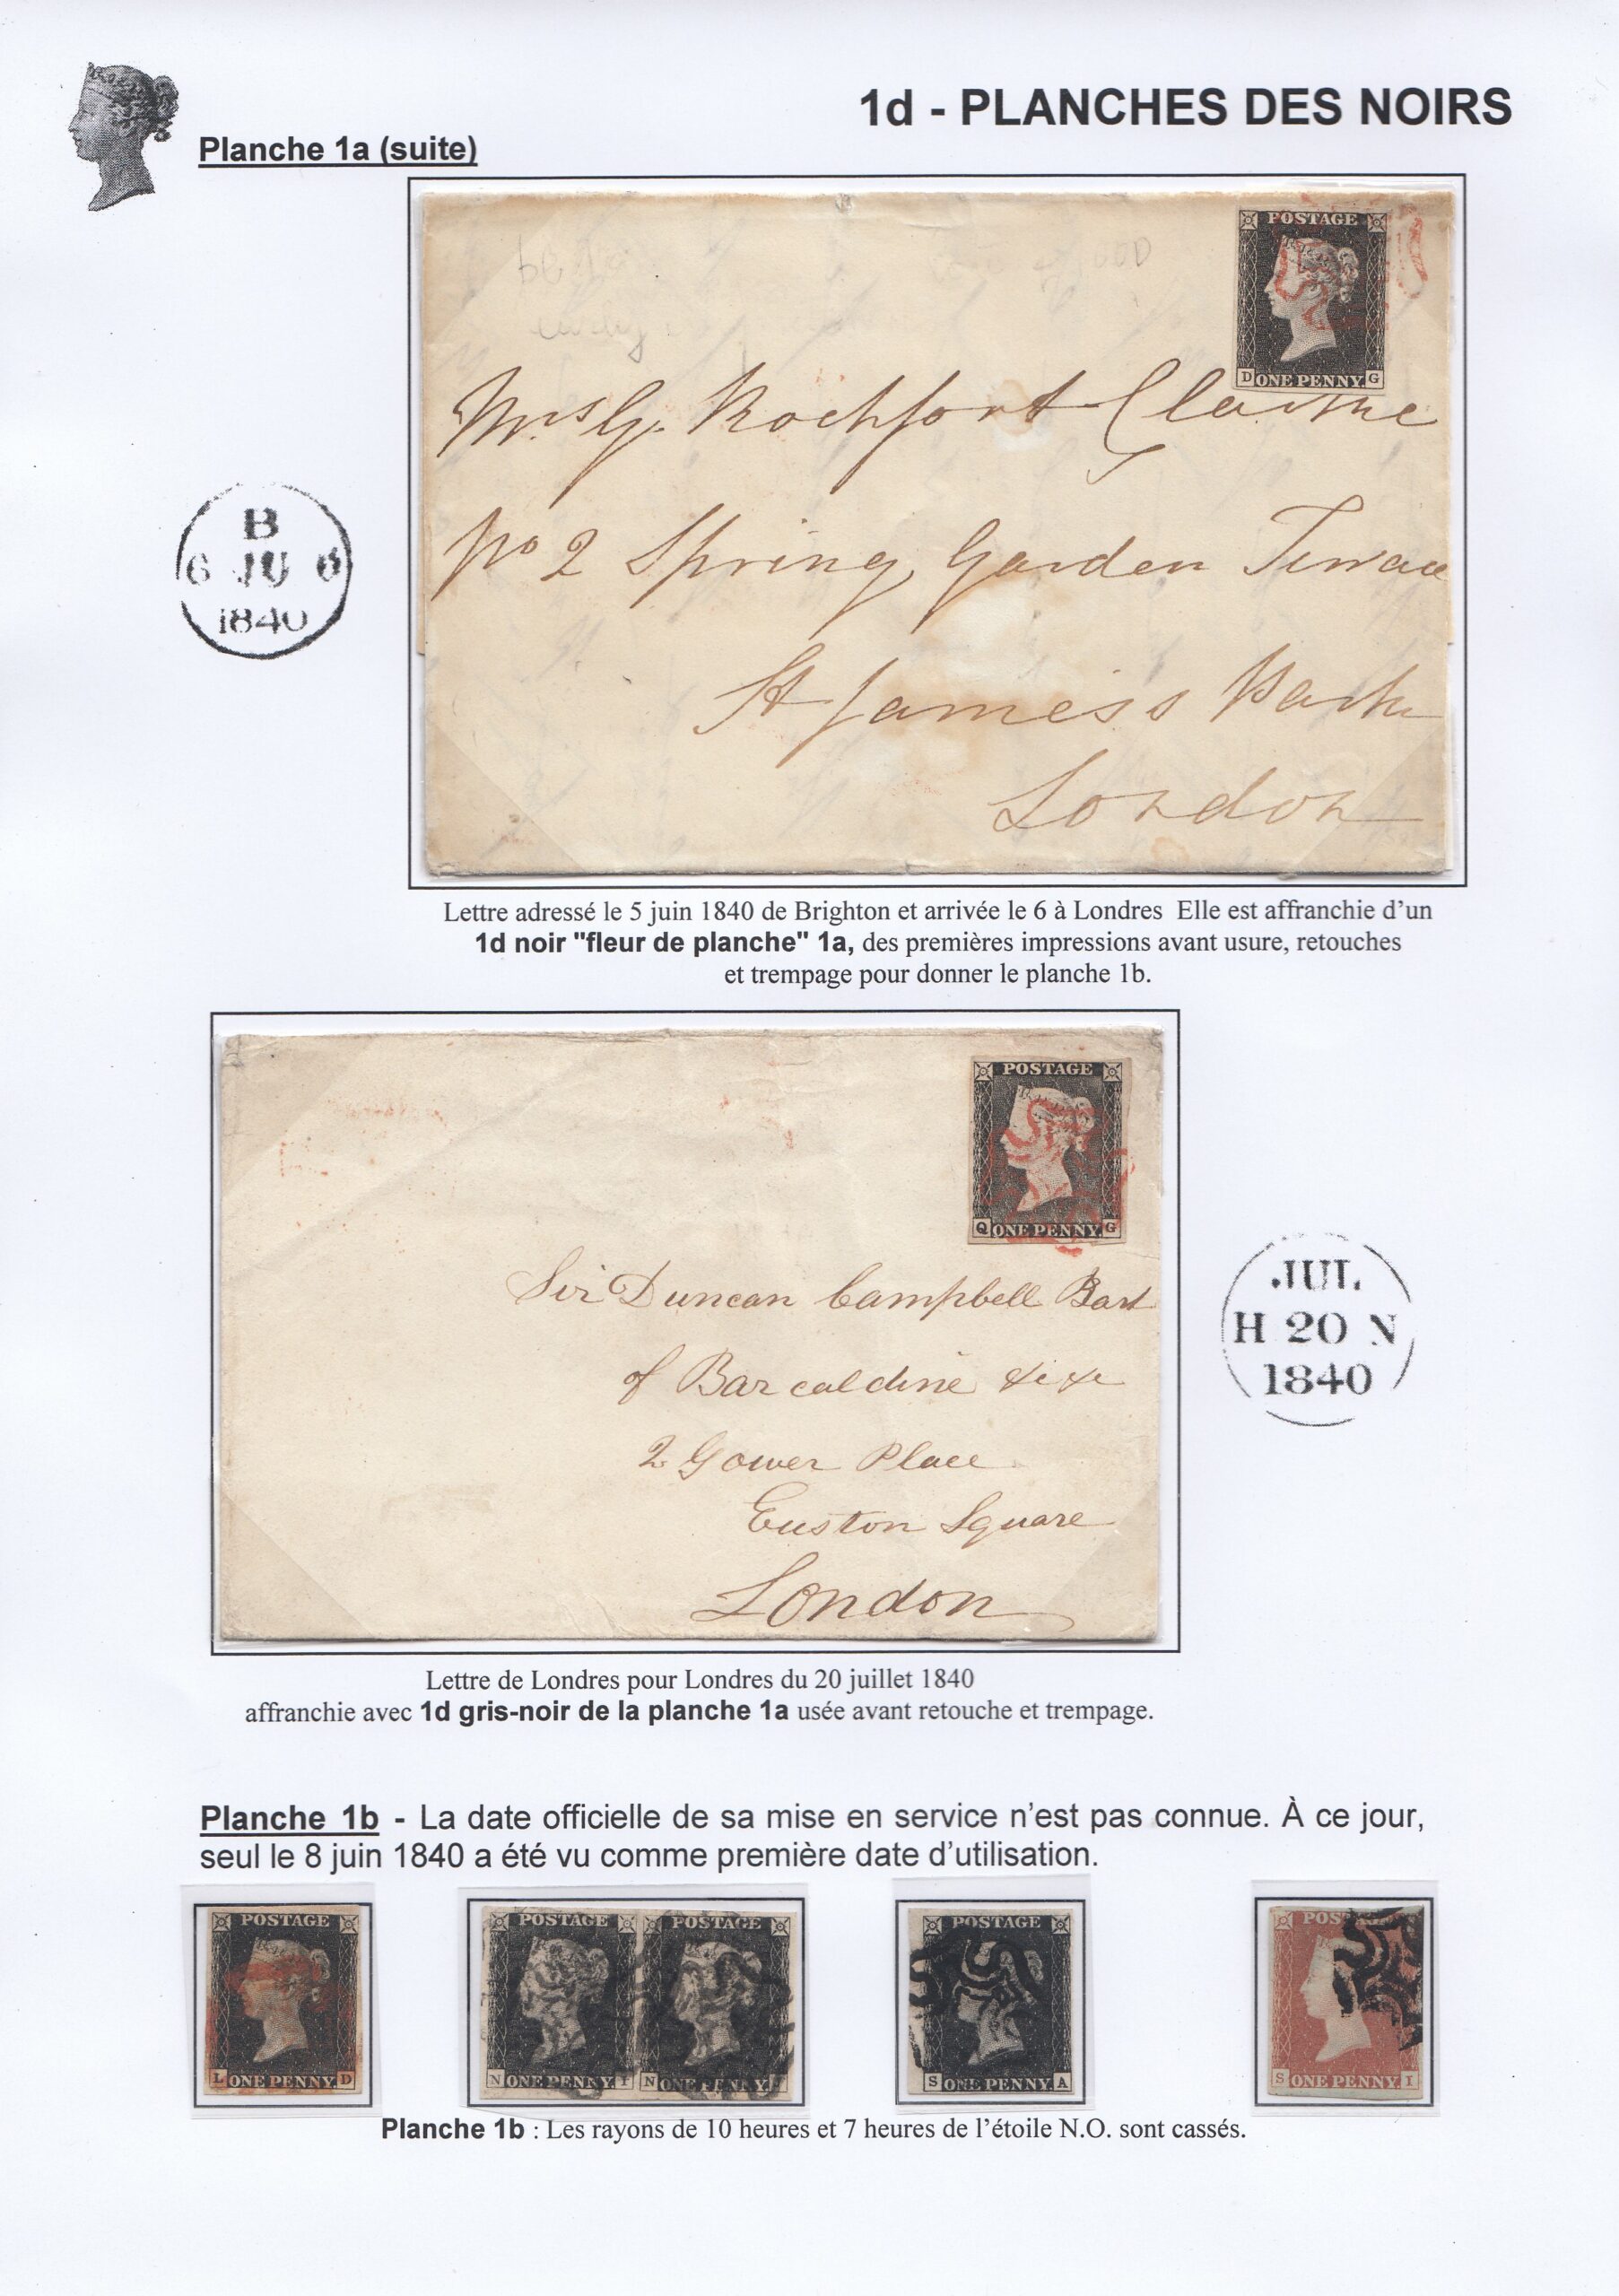 1d - PLANCHES DES NOIRS
Planche 1a (suite)
POSTAGE
D ONE PENNY. G
Mrs G. Rochfort Clarke
No 2 Spring Garden Terrace
St James's Park
London
B
6 JU 6
1840
Lettre adressé le 5 juin 1840 de Brighton et arrivée le 6 à Londres Elle est affranchie d’un
1d noir "fleur de planche" 1a, des premières impressions avant usure, retouches
et trempage pour donner le planche 1b.
POSTAGE
Q ONE PENNY. G
Sir Duncan Campbell Bart
of Barcaldine &c &c
2 Gower Place
Euston Square
London
JUL
H 20 N
1840
Lettre de Londres pour Londres du 20 juillet 1840
affranchie avec 1d gris-noir de la planche 1a usée avant retouche et trempage.
Planche 1b - La date officielle de sa mise en service n’est pas connue. À ce jour,
seul le 8 juin 1840 a été vu comme première date d’utilisation.
POSTAGE
L ONE PENNY. D
POSTAGE POSTAGE
N ONE PENNY. I N ONE PENNY.
POSTAGE
S ONE PENNY. A
POSTAGE
S ONE PENNY. I
Planche 1b : Les rayons de 10 heures et 7 heures de l’étoile N.O. sont cassés.